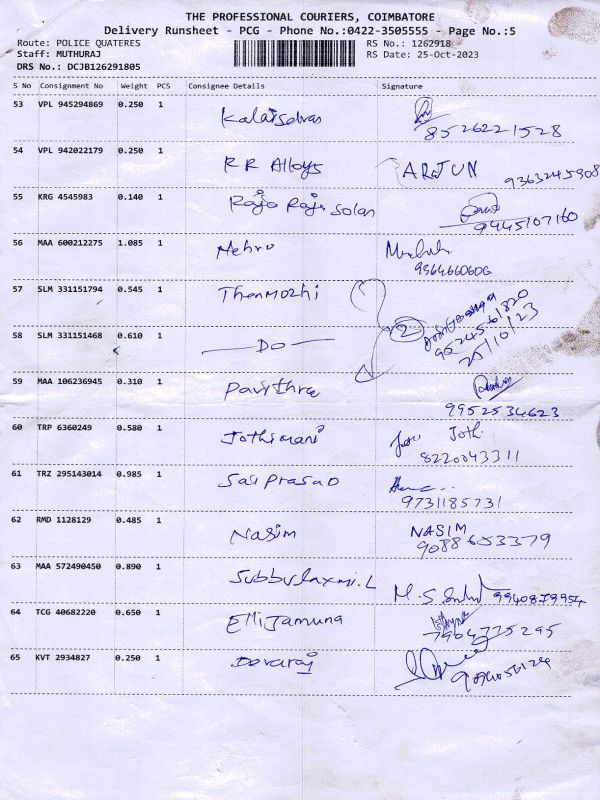 THE PROFESSIONAL COURIERS, COIMBATORE
Delivery Runsheet - PCG - Phone No.:0422-3505555 - Page No.:5
Route: POLICE QUATERES RS No.: 1262918
Staff: MUTHURAJ RS Date: 25-Oct-2023
DRS No.: DCJB126291805
S No Consignment No Weight PCS Consignee Details Signature
53 VPL 945294869 0.250 1 Kalaiselvan
8526221528
54 VPL 942022179 0.250 1 RR Alloys ARJUN
9363245908
55 KRG 4545983 0.140 1 Raja Raja Solan
9445107160
56 MAA 600212275 1.085 1 Nehru
9364660606
57 SLM 331151794 0.545 1 Thenmozhi
58 SLM 331151468 0.610 1 —DO— 2 9524561820
25/10/23
59 MAA 106236945 0.310 1 Pavithra
9952534623
60 TRP 6360249 0.580 1 Jothimani Jothi
8220043311
61 TRZ 295143014 0.985 1 Sai Prasad
9731185731
62 RMD 1128129 0.485 1 Nasim NASIM
9088653379
63 MAA 572490450 0.890 1 Subbulaxmi.L M.S
9940879954
64 TCG 40682220 0.650 1 Elli Jamuna
7904775295
65 KVT 2934827 0.250 1 Devaraj